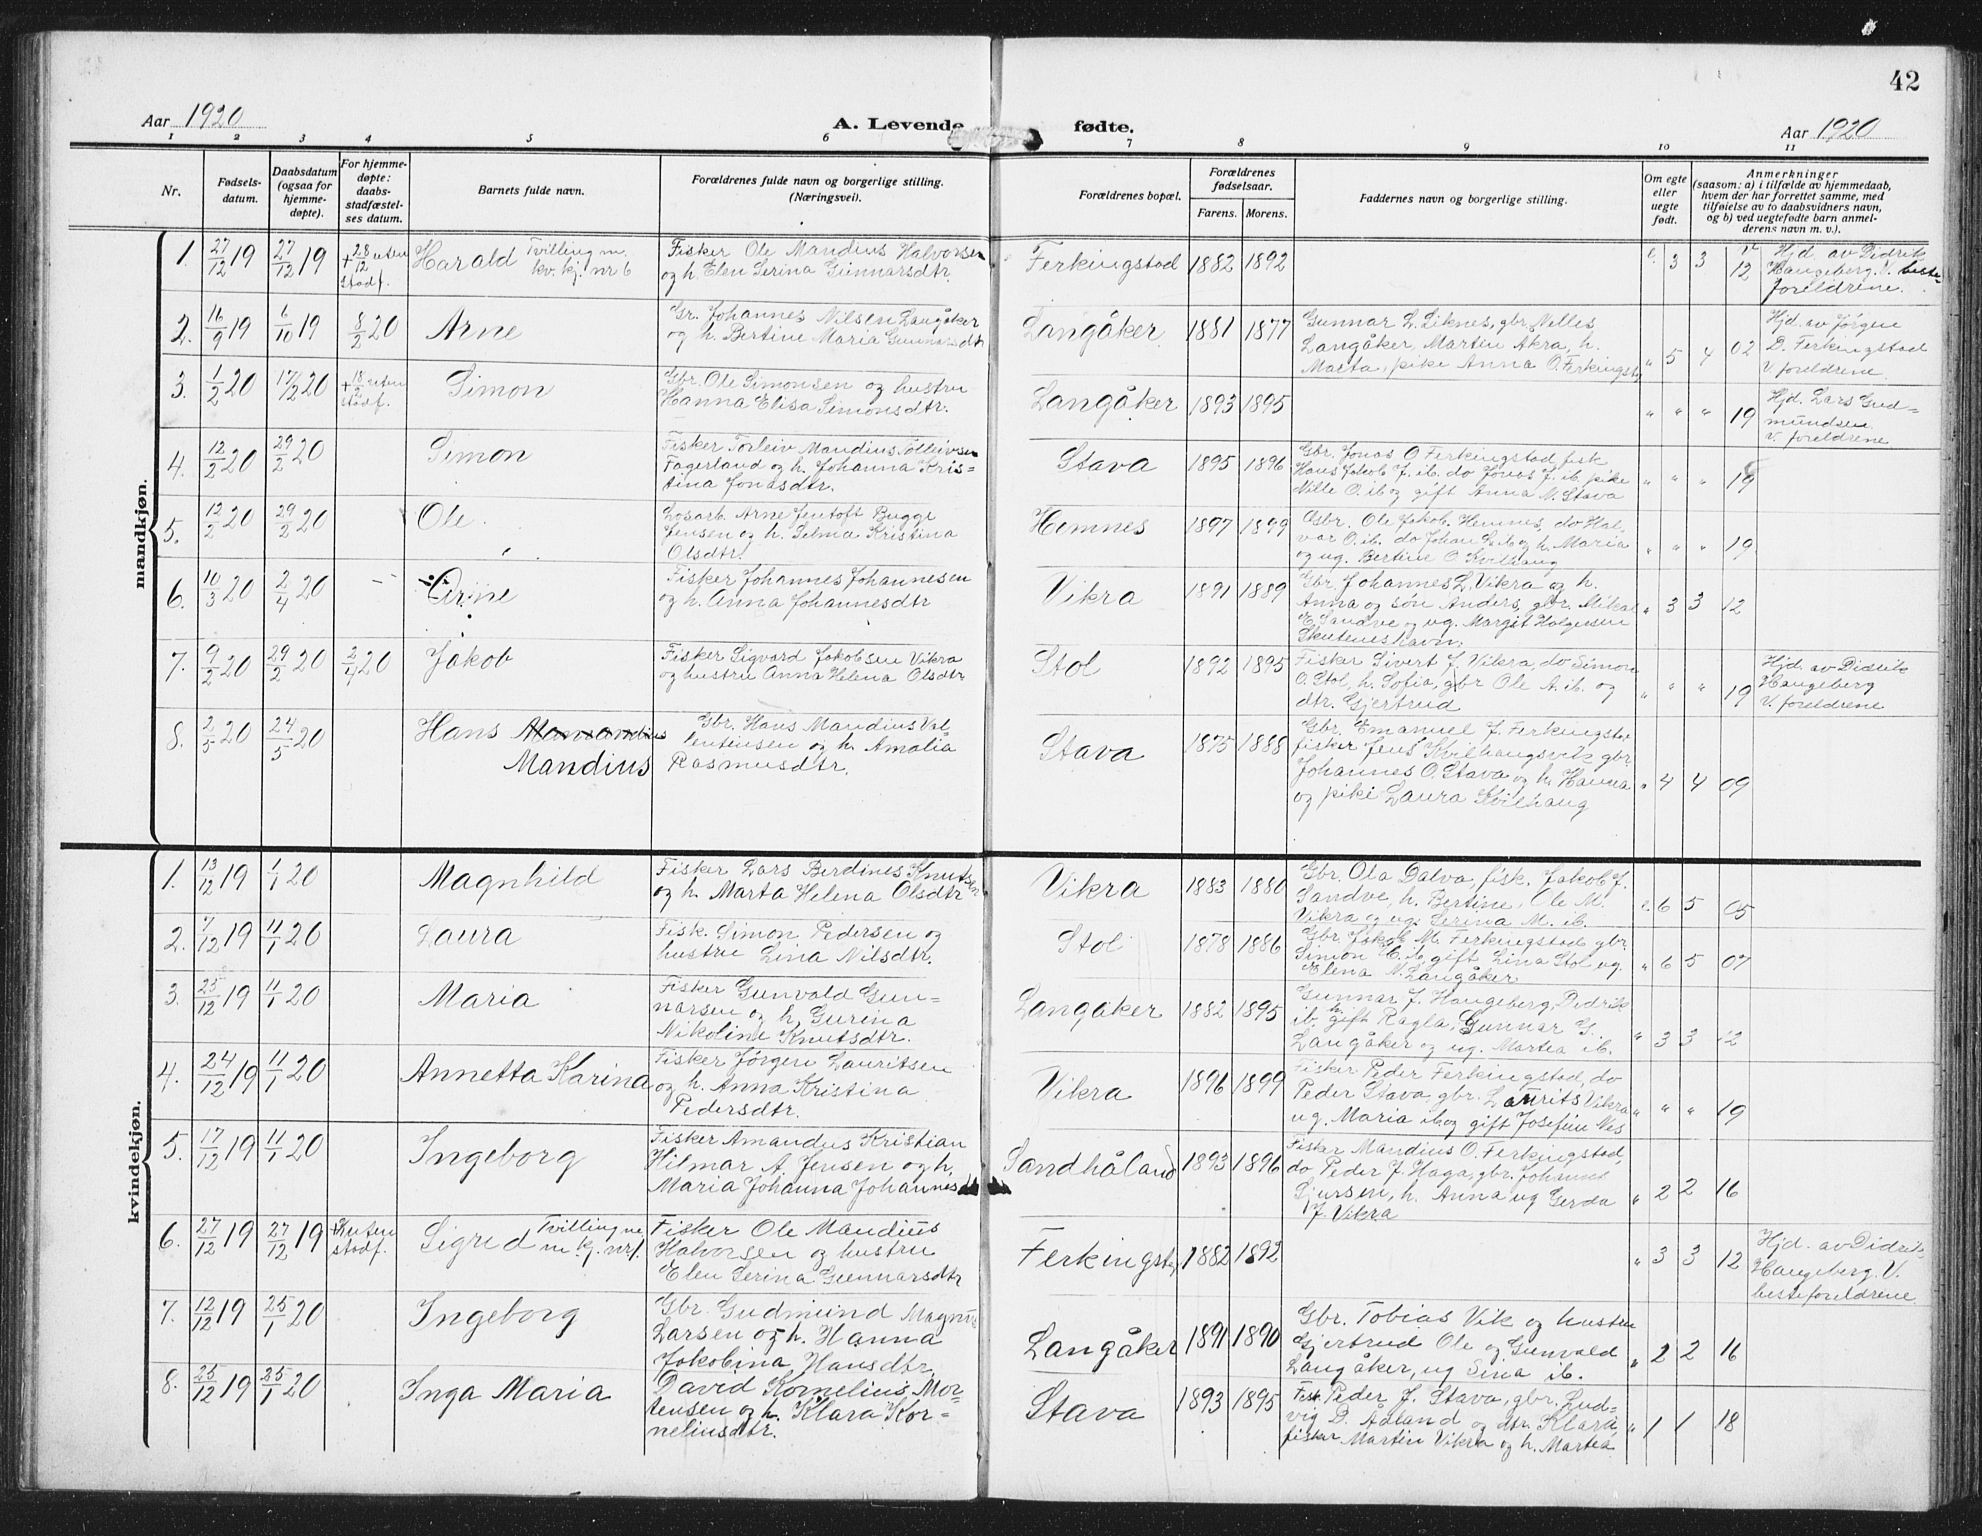 42
Aar 1920
A. Levende fødte.
Aar 1920
1 2 3 4 5 6 7 8 9 10 11
Nr.
Fødsels-
datum.
Daabsdatum
(ogsaa for
hjemme-
døpte).
For hjemme-
døpte:
daabs-
stadfæstel-
ses datum.
Barnets fulde navn.
Forældrenes fulde navn og borgerlige stilling.
(Næringsvei).
Forældrenes bopæl.
Forældrenes
fødselsaar.
Farens. Morens.
Faddernes navn og borgerlige stilling.
Om egte
eller
uegte
født.
Anmerkninger
(saasom: a) i tilfælde av hjemmedaab,
hvem der har forrettet samme, med
tilføielse av to daabsvidners navn,
og b) ved uegtefødte barn anmel-
derens navn m. v.).
mandkjøn.
1. 27/12 19 27/12 19 + 28/12 uten stadf. Harald Tvilling m. kv. kj. nr 6
Fisker Ole Mandius Halvorsen
og h. Elen Serina Gunnarsdtr.
Ferkingstad 1882 1892 e. 3 3 12
Hjd. av Didrik
Haugeberg. V. beste-
foreldrene.
2. 16/9 19 6/10 19 8/2 20 Arne
Gr. Johannes Nilsen Langåker
og h. Bertine Maria Gunnarsdtr
Langåker 1881 1877
Gunnar L. Liknes, gbr. Nelles
Langåker, Martin Akra, h.
Marta, pike Anna O. Ferkingst.
" 5 4 02
Hjd. av Jørgen
D. Ferkingstad
V. foreldrene.
3. 1/2 20 17/2 20 + 18/2 uten stadf. Simon
Gbr. Ole Simonsen og hustru
Hanna Elisa Simonsdtr.
Langåker 1893 1895 " " " 19
Hjd. Lars Gud-
mundsen
V. foreldrene
4. 12/2 20 29/2 20 Simon
Fisker Torleiv Mandius Tolleivsen
Fagerland og h. Johanna Kris-
tina Jonasdtr.
Stava 1895 1896
Gbr. Jonas O Ferkingstad fisk
Hans Jakob J. ib. do Jonas J. ib. pike
Nille O. ib og gift Anna N. Stava
" " " 19
5. 12/2 20 29/2 20 Ole
Losarb. Arne Jentoft Bugge
Jensen og h. Selma Kristina
Olsdtr.
Hemnes 1897 1899
Gbr. Ole Jakob. Hemnes, do Hal-
var O. ib. do Johan L. ib og h. Maria
og ug. Bertine O. Kvilhaug
" " " 19
6. 10/3 20 2/4 20 -- Arine
Fisker Johannes Johannesen
og h. Anna Johannesdtr
Vikra 1891 1889
Gbr Johannes L. Vikra og h.
Anna og søn Anders, gbr. Mikal
E. Sandve og ug. Margit Holgersen
Skutenes havn.
" 3 3 12
7. 9/2 20 29/2 20 2/4 20 Jakob
Fisker Sigvard Jakobsen Vikra
og hustru Anna Helena Olsdtr
Stol 1892 1895
Fisker Sivert J. Vikra, do Simon
O. Stol, h. Sofia, gbr Ole A. ib. og
dtr. Gjertrud
" " " 19
Hjd. av Didrik
Haugeberg
V. foreldrene
8. 2/5 20 24/5 20 Hans Mandius
Gbr. Hans Mandius Val-
lentensen og h. Amalia
Rasmusdtr.
Stava 1875 1888
Gbr. Emanuel J. Ferkingstad
fisker Jens Kvilhaugsvik gbr.
Johannes O. Stava og h. Hanna
og pike Laura Kvilhaug
" 4 4 09
kvindekjøn.
1. 13/12 19 1/1 20 Magnhild
Fisker Lars Berdines Knutsen
og h. Marta Helena Olsdtr
Vikra 1883 1880
Gbr. Ola Dalva, fisk. Jakob J.
Sandve, h. Bertine, Ole M.
Vikra og ug. Serina M. ib.
e. 6 5 05
2. 7/12 19 11/1 20 Laura
Fisk. Simon Pedersen og
hustru Lina Nilsdtr.
Stol 1878 1886
Gbr. Jakob M. Ferkingstad gbr.
Simon C. ib, gift Lina Stol ug.
Elena N. Langåker
" 6 5 07
3. 25/12 19 11/1 20 Maria
Fisker Gunvald Gun-
narsen og h. Gurina
Nikoline Knutsdtr.
Langåker 1882 1895
Gunnar J. Haugeberg, Didrik
ib. h. gift Ragla, Gunnar G.
Langåker og ug. Martea ib.
" 3 3 12
4. 24/12 19 11/1 20 Annetta Karina
Fisker Jørgen Lauritsen
og h. Anna Kristina
Pedersdtr.
Vikra 1896 1899
Fisker Peder Ferkingstad, do
Peder Stava gbr. Laurits Vikra
ug. Maria ib og gift Josefine Nes
" " " 19
5. 17/12 19 11/1 20 Ingeborg
Fisker Amandus Kristian
Hilmar A. Jensen og h.
Maria Johanna Johannes
Sandhåland 1893 1896
Fisker Mandius O. Ferkingstad,
do Peder J. Haga, gbr. Johannes
Sjursen, h. Anna ug Gerda
J. Vikra
" 2 2 16
6. 27/12 19 27/12 19 + uten stadf. Sigred Tvilling m m. kj. nr 1.
Fisker Ole Mandius
Halvorsen og hustru
Elen Serina Gunnarsdtr
Ferkingstad 1882 1892 " 3 3 12
Hjd. av Didrik
Haugeberg. V.
besteforeldrene
7. 12/12 19 25/1 20 Ingeborg
Gbr. Gudmund Magnus
Larsen og h. Hanna
Jakobina Hansdtr.
Langåker 1891 1890
Gbr. Tobias Vik og hustru
Gjertrud Ole og Gunvald
Langåker, ug Sina ib.
" 2 2 16
8. 25/12 19 25/1 20 Inga Maria
David Kornelius Mor-
tensen og h. Klara Kor-
neliusdtr.
Stava 1893 1895
Fisk. Peder J. Stava, gbr. Lud-
vig D. Ådland og dtr. Klara,
fisker Martin Vikra og h. Martea
" 1 1 18